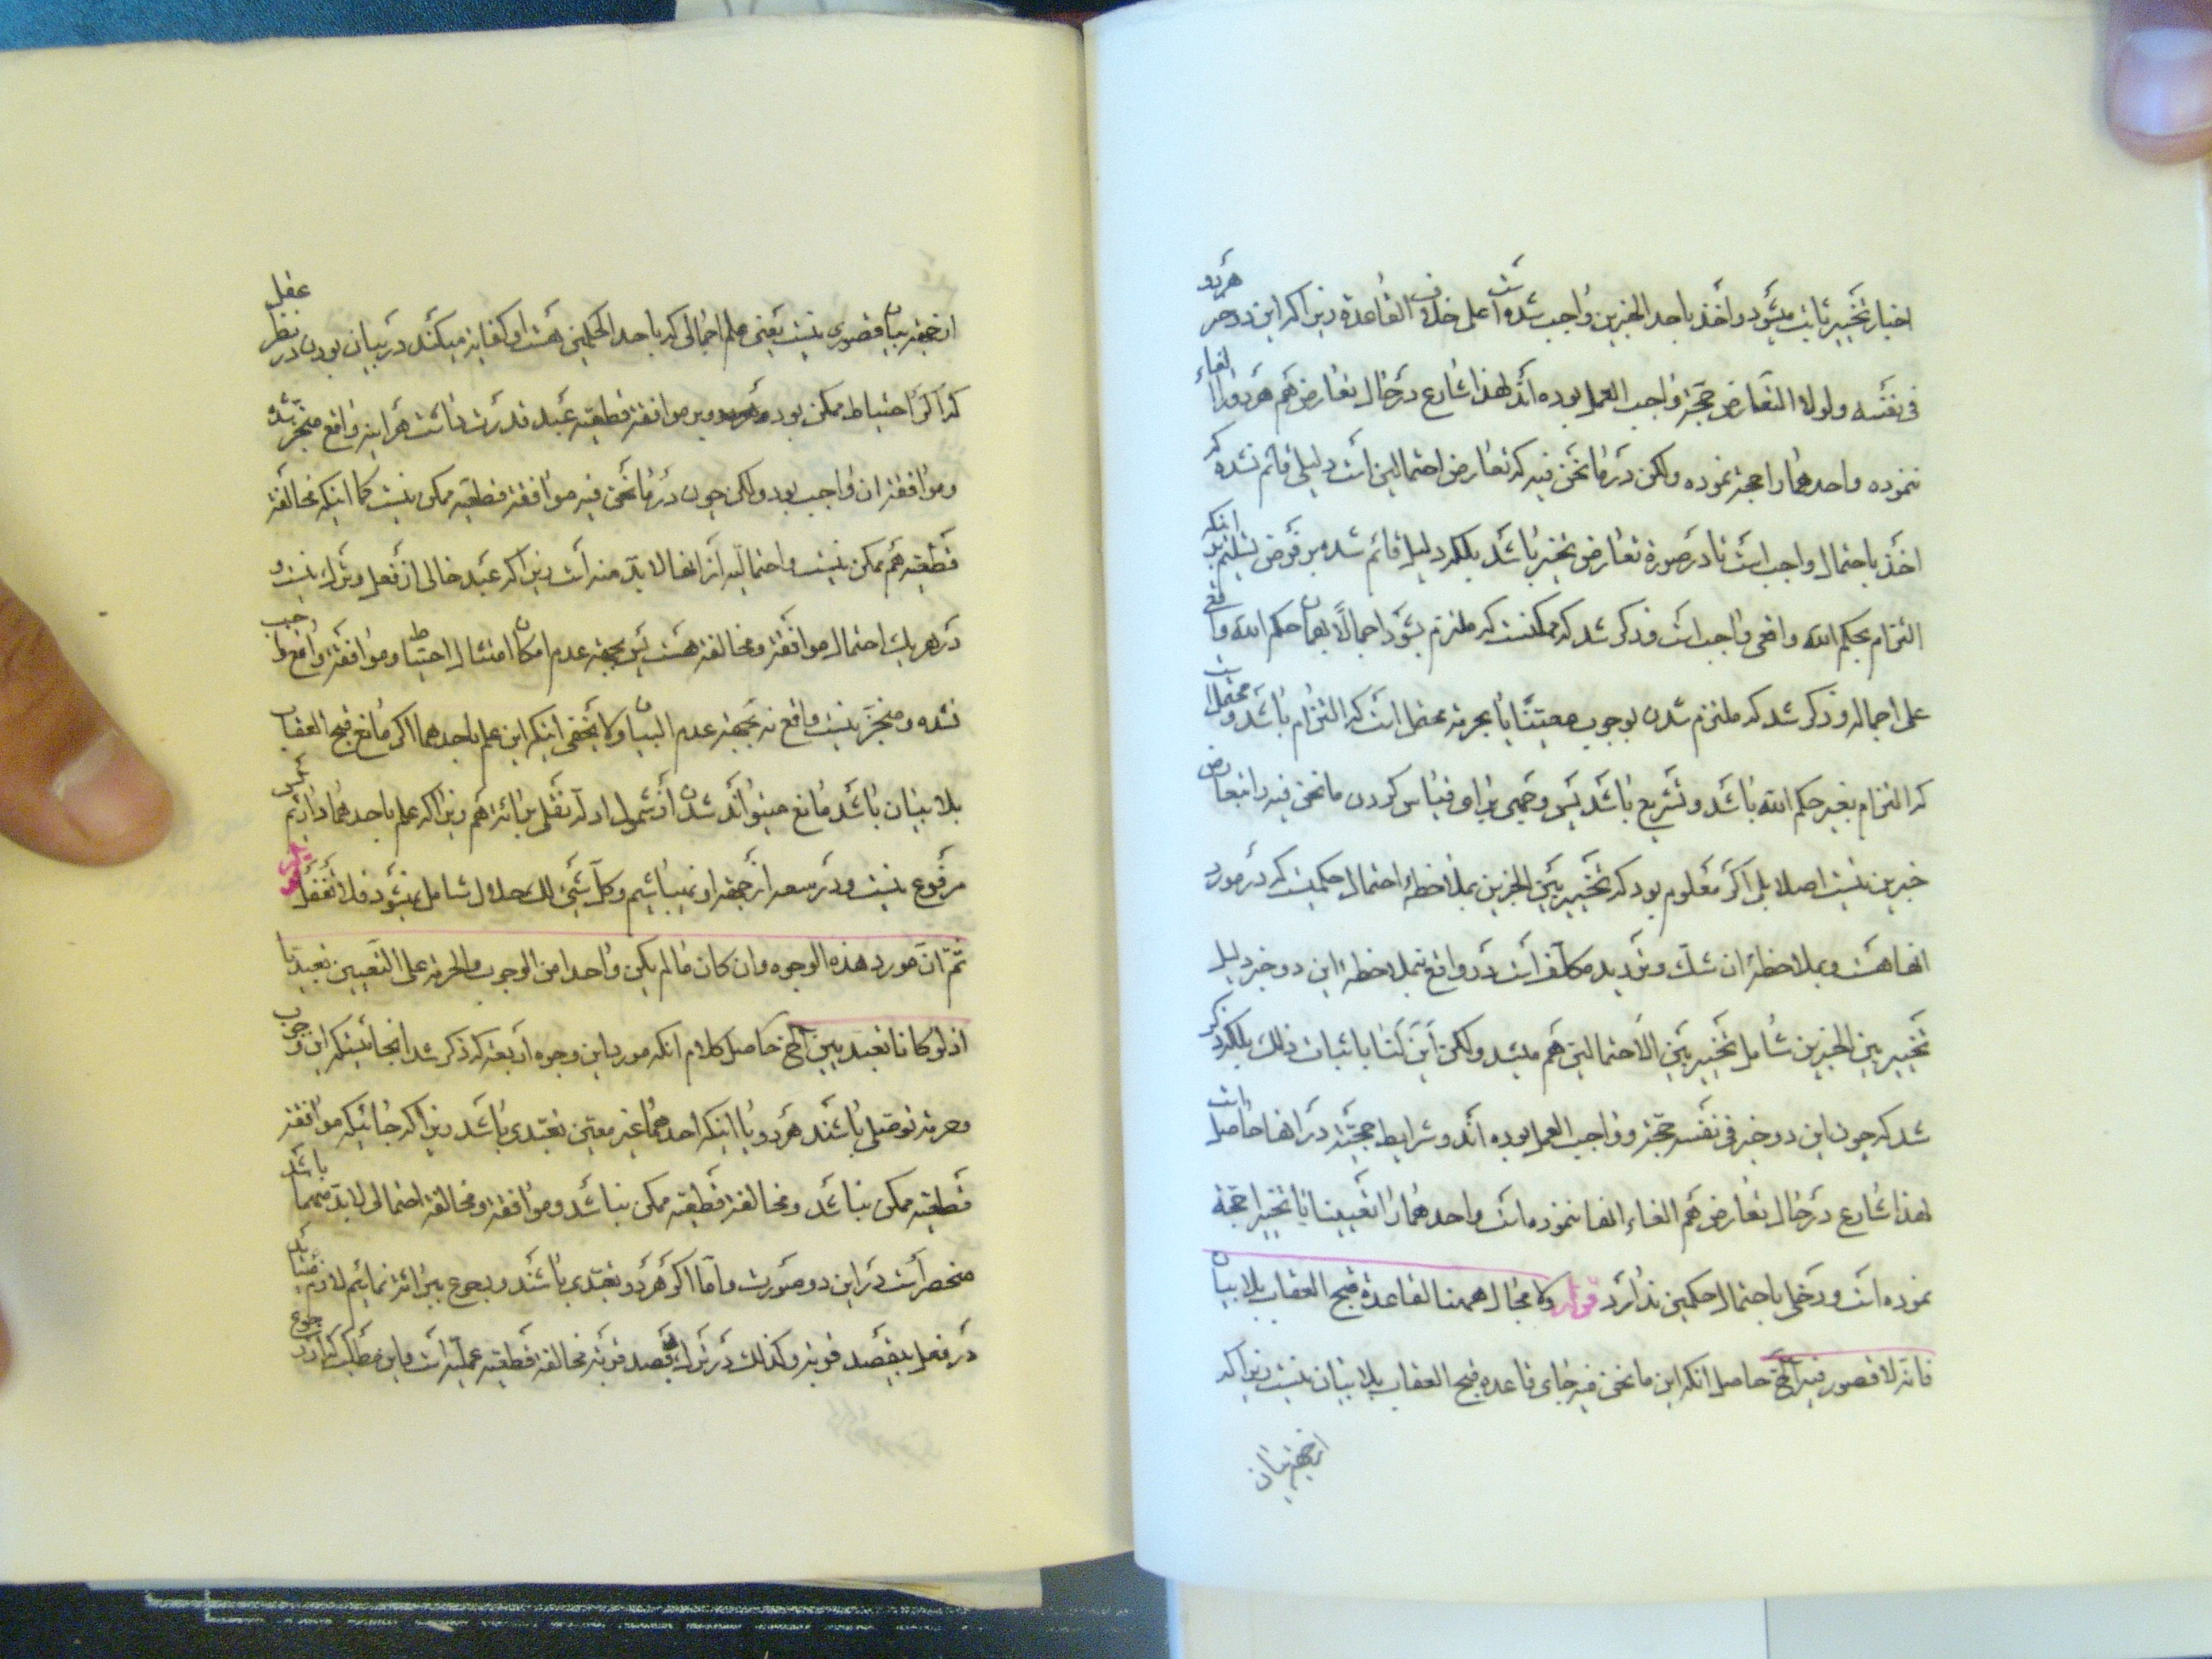 اخبار تخییر ثابت میشود و اخذ باحد الخبرین واجب شده است علی خلاف القاعدة زیرا اکر این دو خبر هر دو
فی نفسه ولولا التعارض حجة واجب العمل بوده اند لهذا شارع در حال تعارض هم هر دو را الغاء
ننموده واحدهما را حجة نموده ولکن در ما نحن فیه که تعارض احتمالین است دلیلی قائم نشده که
اخذ باحتمال واجب است تا در صورة تعارض تخییر باشد بلکه دلیل قائم شده بر فرض تسلیم بر انکه
التزام بحکم الله واقعی واجب است و ذکر شد که ممکنست که ملتزم بشود اجمالاً بهمان حکم الله واقعی
علی اجماله و ذکر شد که ملتزم شدن بوجوب معیّناً یا بحرمة محتمل است که التزام باشد و محتمل است
که التزام بغیر حکم الله باشد و تشریع باشد پس وجهی برای قیاس کردن ما نحن فیه را بتعارض
خبرین نیست اصلا بلی اکر معلوم بود که تخییر بین الخبرین بملاحظهٔ احتمال حکمینست که در مورد
انها هست و بملاحظهٔ ان شك و تردید مکلف است در واقع نه بملاحظهٔ این دو خبر دلیل
تخییر بین الخبرین شامل تخییر بین الاحتمالین هم میشد ولکن این لنا باثبات ذلك بلکه ذکر
شد که چون این دو خبر فی نفسه حجة و واجب العمل بوده اند و شرایط حجیّة در انها حاصل است
لهذا شارع در حال تعارض هم الغاء انها ننموده است واحدهما را تعیینا یا تخییرا حجة
نموده است و دخلی باحتمال حکمین ندارد قوله ولا مجال هیهنا لقاعدة قبح العقاب بلا بیان
فانه لا قصور فیه الخ حاصل انکه این ما نحن فیه جای قاعده قبح العقاب بلا بیان نیست زیرا که
از جهة بیان
از جهة بیان قصوری نیست یعنی علم اجمالی که باحد الحکمین هست او کفایة میکند در بیان بودن در نظر عقل
که اکر احتیاط ممکن بود و بر موافقة قطعیّه عبد قدرت داشت هر اینه واقع منجّز میشد
و موافقة ان واجب بود ولکن چون در ما نحن فیه موافقة قطعیّه ممکن نیست کما اینکه مخالفة
قطعیّه هم ممکن نیست و احتمالیّه از انها لا بدّ منه است زیرا که عبد خالی از فعل و ترك نیست و
در هر یك احتمال موافقة و مخالفة هست پس بجهة عدم امکان امتثال احتیاط و موافقة واقع واجب
نشده و منجّز نیست واقع نه بجهة عدم البیان ولا یخفی اینکه این علم باحدهما اکر مانع قبح العقاب
بلا بیان باشد مانع میتواند شدن از شمول ادلّه نقلی برائة هم زیرا که علم باحدهما داریم
مرفوع نیست و در سعه از جهة او نمیباشیم و کل شیئ لك حلال شامل نمیشود فلا تغفل
ثم ان مورد هذه الوجوه وان کان ما لم یکن واحدا من الوجوب والحرمة علی التعیین تعبدیا
اذ لو کانا تعبدیین الخ حاصل کلام انکه مورد این وجوه اربعه که ذکر شد انجائیستکه این وجوب
و حرمة توصلی باشند هر دو یا اینکه احدهما غیر معین تعبدی باشد زیرا که جائیکه موافقة
قطعیّه ممکن نباشد و مخالفة قطعیّه ممکن نباشد و موافقة و مخالفة احتمالی لا بدّ منهما باشد
منحصر است در این دو صورت و اما اکر هر دو تعبدی باشند و رجوع ببرائة نمائیم لازم میاید
در فعل بیقصد قربة و کذلك در ترك بیقصد قربة مخالفة قطعیّه عملیّه است و این مطلب که رجوع